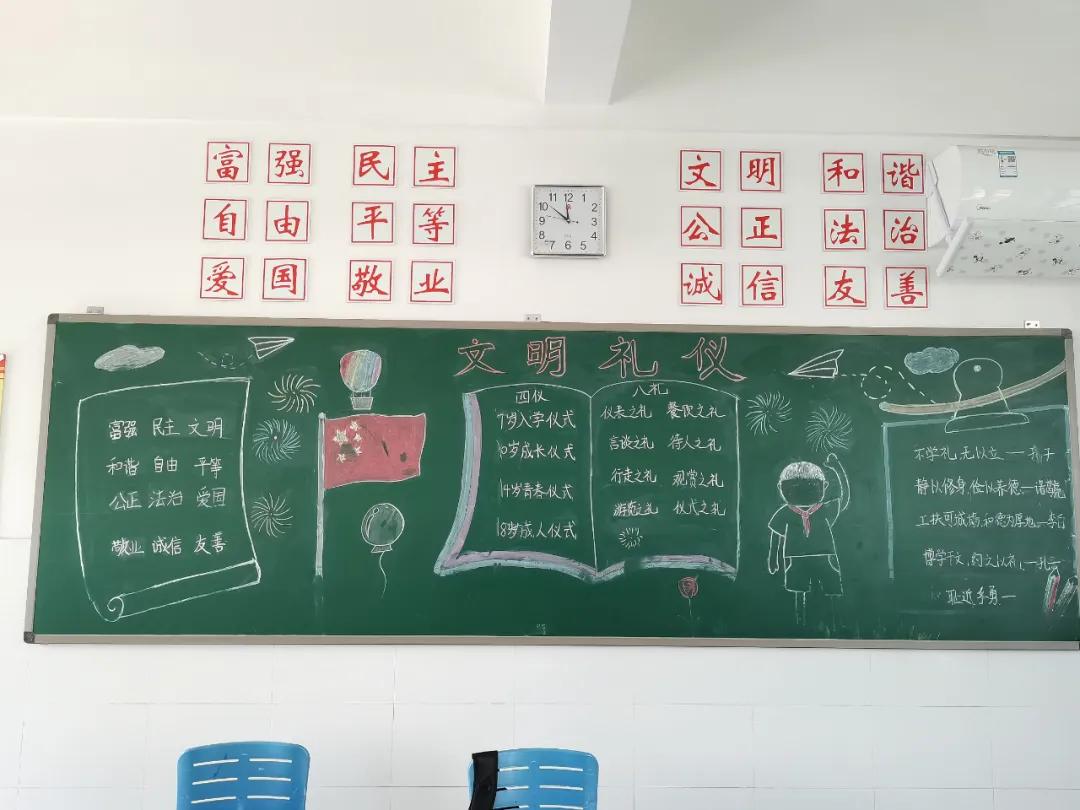 富强 民主
自由 平等
爱国 敬业
文明 和谐
公正 法治
诚信 友善
富强 民主 文明
和谐 自由 平等
公正 法治 爱国
敬业 诚信 友善
文明礼仪
四仪
7岁入学仪式
10岁成长仪式
14岁青春仪式
18岁成人仪式
八礼
仪表之礼 餐饮之礼
言谈之礼 待人之礼
行走之礼 观赏之礼
游览之礼 仪式之礼
不学礼,无以立——孔子
静以修身,俭以养德
博学于文,约之以礼
12
1
2
3
4
5
6
7
8
9
10
11